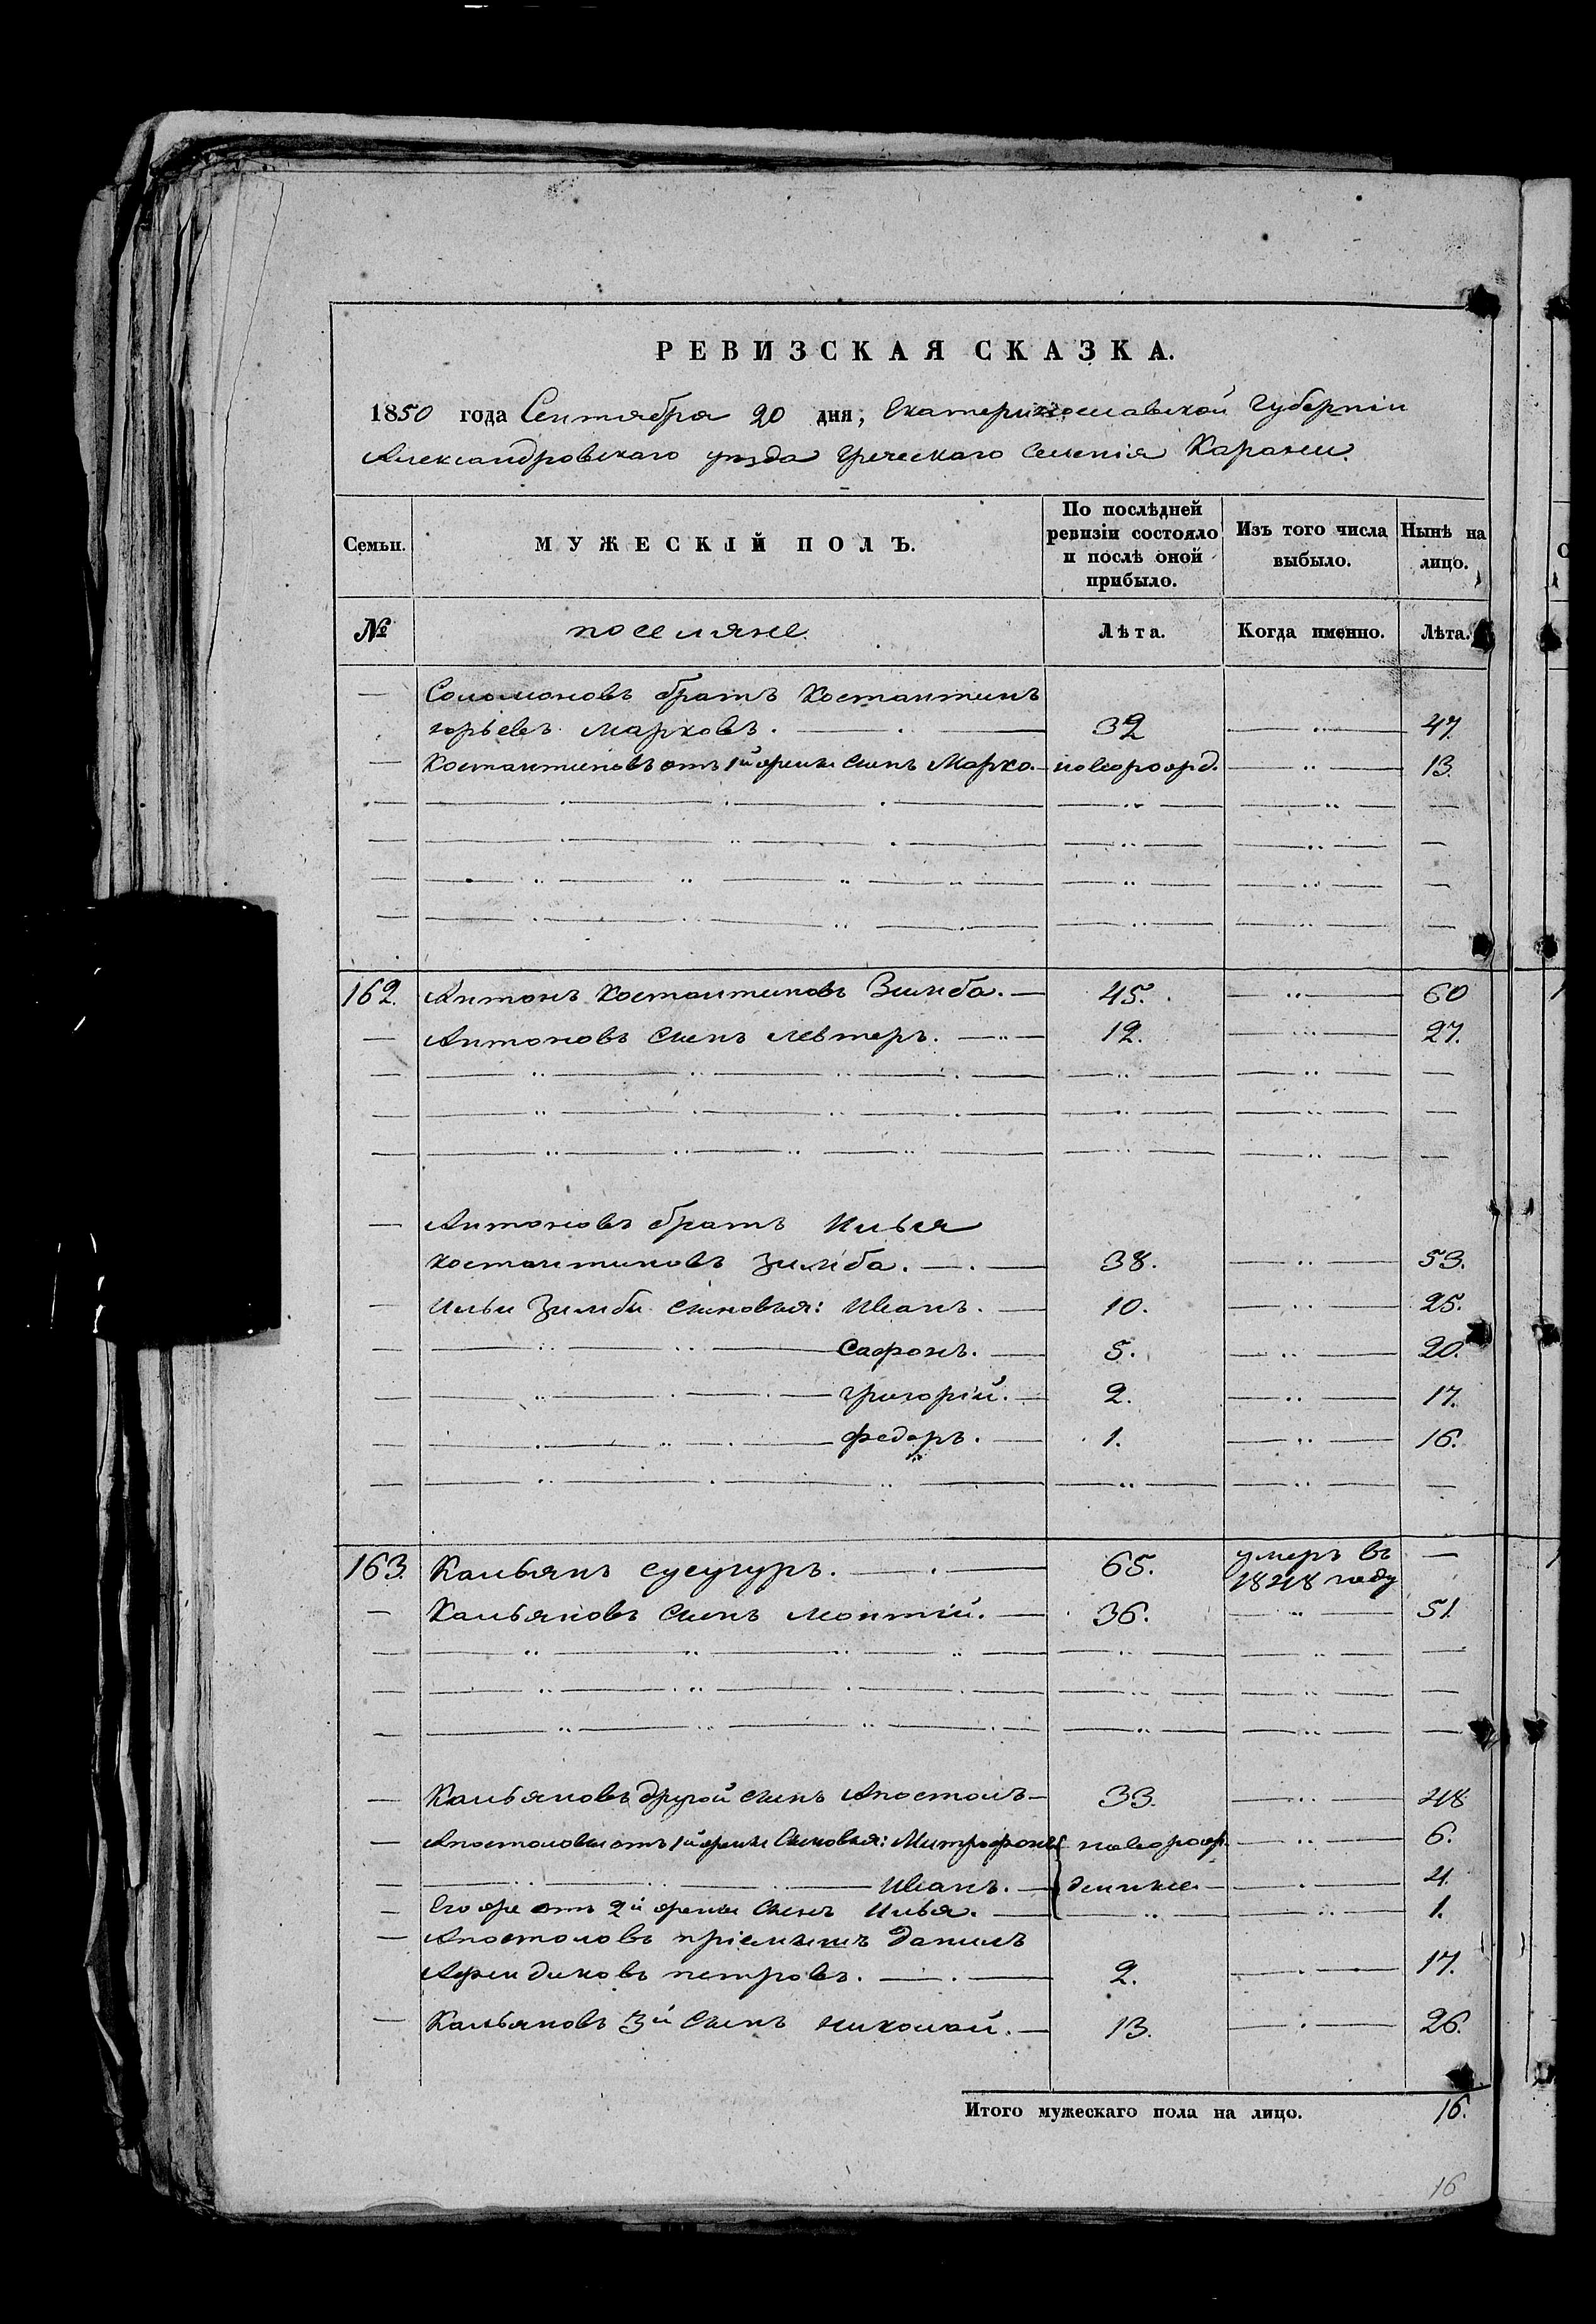 РЕВИЗСКАЯ СКАЗКА.
1850 года Сентября 20 дня, Екатеринославской Губерніи
Александровскаго уѣзда Греческаго Селенія Карани.
Семьи. МУЖЕСКІЙ ПОЛЪ. По послѣдней ревизіи состояло и послѣ оной прибыло. Изъ того числа выбыло. Нынѣ на лицо.
№ поселяне Лѣта. Когда именно. Лѣта.
Соломоновъ братъ Костантинъ
юрьевъ Марковъ. 32 47
Костантиновъ отъ 1й жены сынъ Марко. новорожд. 13
162. Антонъ Костантиновъ Зимба. 45. 60
Антоновъ сынъ левтеръ. 12. 27.
Антоновъ братъ Илья
костантиновъ Зимба. 38. 53.
Ильи Зимби сыновья: Иванъ. 10. 25.
Сафронъ. 5. 20.
григорій. 2. 17.
федоръ. 1. 16.
163. Кальянъ сусугуръ. 65. умеръ въ
1848 году
Кальяновъ сынъ монтій. 36. 51
Кальяновъ другой сынъ Апостолъ 33. 48
Апостоловы отъ 1й жены сыновья: Митрофонъ новорож 6.
Иванъ. денные 4.
Его же отъ 2й жены сынъ Илья. 1.
Апостоловъ пріемышъ Данилъ
Афендиковъ петровъ. 2. 17.
Кальяновъ 3й сынъ николай. 13. 26.
Итого мужескаго пола на лицо. 16.
16